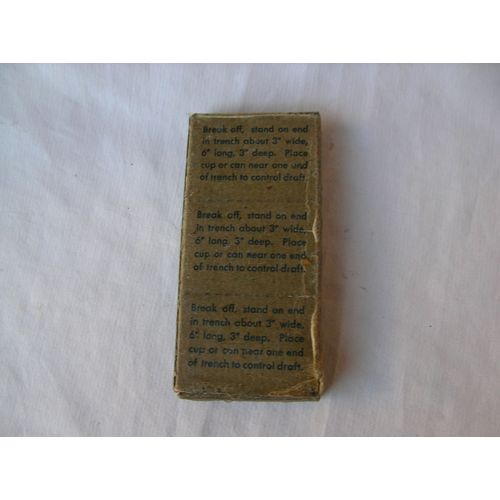 Break off, stand on end
in trench about 3" wide,
6" long, 3" deep. Place
cup or can near one end
of trench to control draft.
Break off, stand on end
in trench about 3" wide,
6" long, 3" deep. Place
cup or can near one end
of trench to control draft.
Break off, stand on end
in trench about 3" wide,
6" long, 3" deep. Place
cup or can near one end
of trench to control draft.